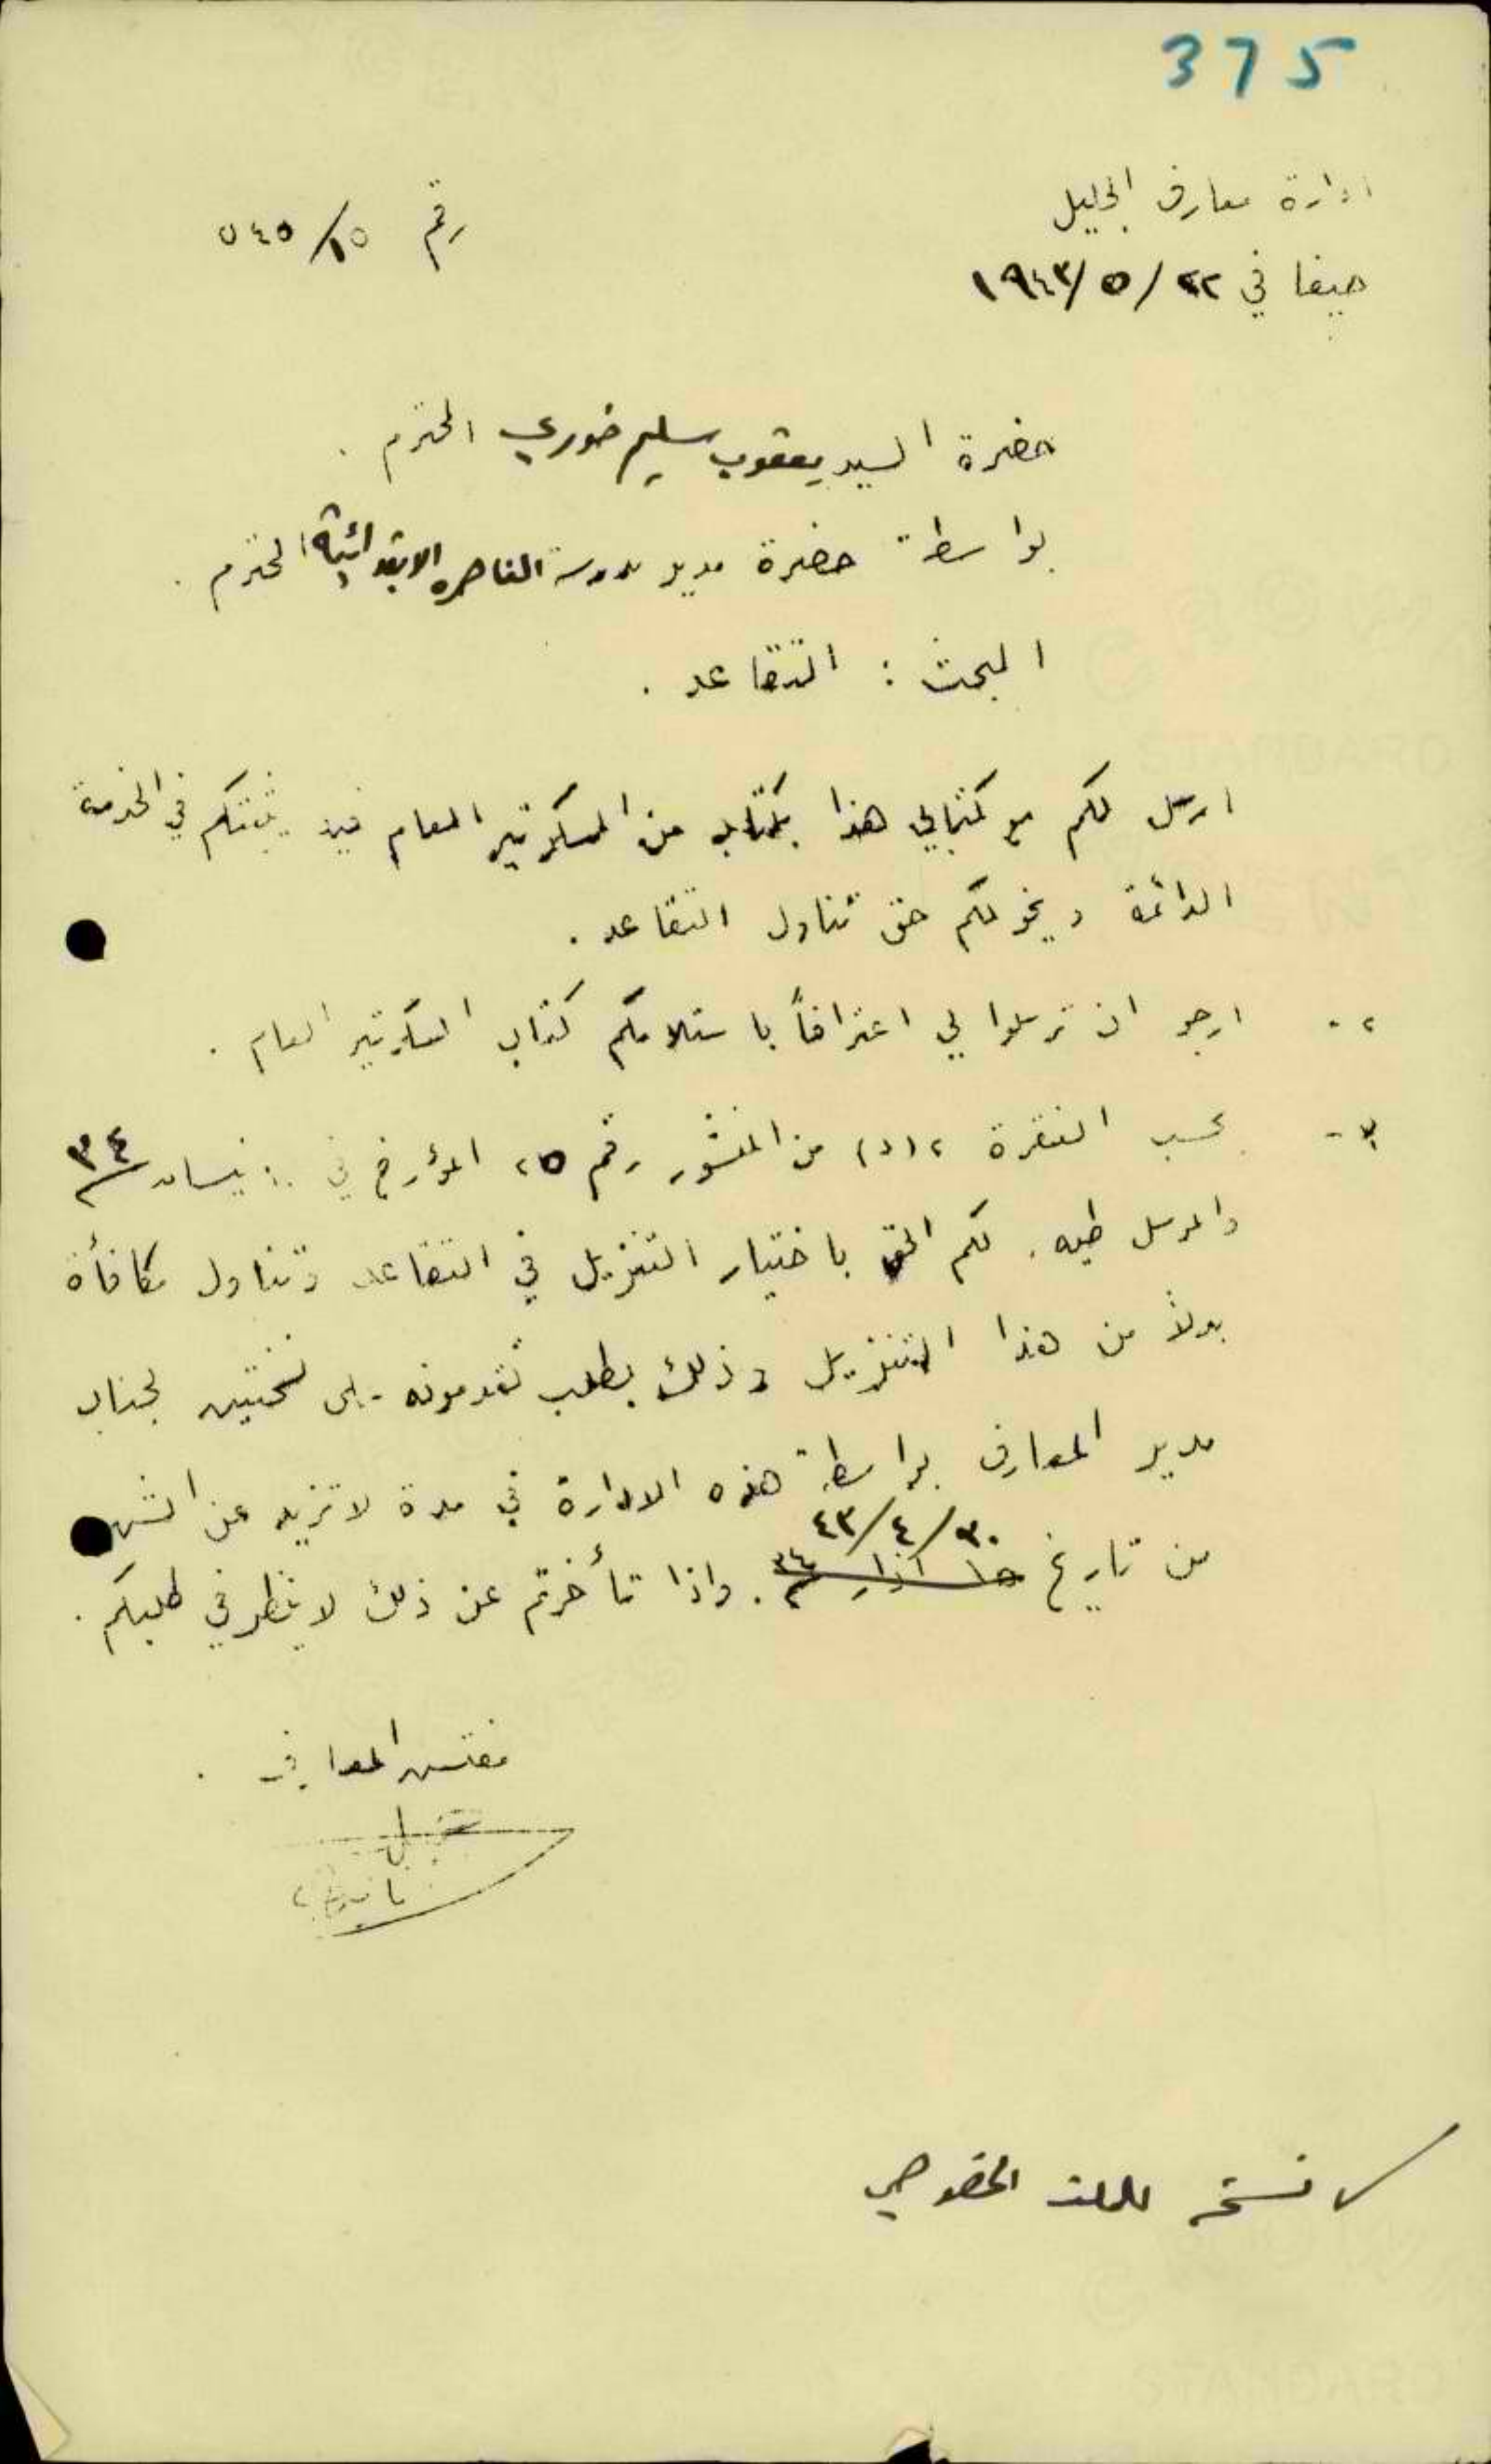 375
ادارة معارف الجليل
رقم ١٥/٥٤٥
حيفا في ٢٢/٥/١٩٤٣
حضرة السيد يعقوب سليم خوري المحترم .
بواسطة حضرة مدير مدرسة الناصره الابتدائية المحترم .
المبحث : التقاعد .
ارسل لكم مع كتابي هذا كتاب من السكرتير العام فيه يثبتكم في الخدمة
الدائمة ويخولكم حق تناول التقاعد .
٢- ارجو ان ترسلوا لي اعترافاً باستلامكم كتاب السكرتير العام .
٣- بحسب الفقرة ٢(د) من المنشور رقم ٢٥ المؤرخ في نيسان ٣٤
والمرسل طيه . لكم الحق باختيار التنزيل في التقاعد وتناول مكافأة
بدلاً من هذا التنزيل وذلك بطلب تقدمونه على نسختين لجناب
مدير المعارف بواسطة هذه الادارة في مدة لا تزيد عن الشهر
٣٠/٤/٤٣
من تاريخ ١٥ آذار ٣٤ . واذا تأخرتم عن ذلك لا ينظر في طلبكم .
مفتش المعارف .
نسخه للملف الخصوصي